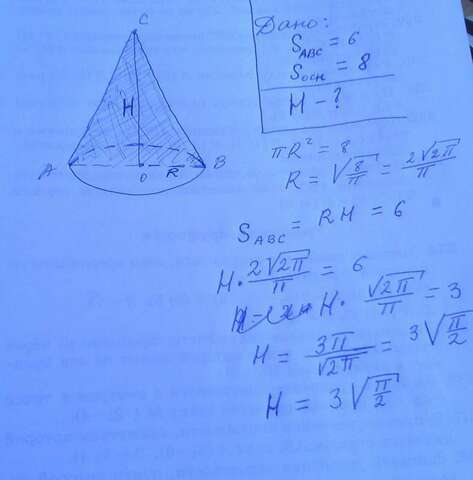 C
H
A
O
R
B
Дано:
S_ABC = 6
S_осн = 8
H - ?
πR² = 8
R = √(8/π) = 2√(2π)/π
S_ABC = RH = 6
H · 2√(2π)/π = 6
H · √(2π)/π = 3
H = 3π/√(2π) = 3√(π/2)
H = 3√(π/2)